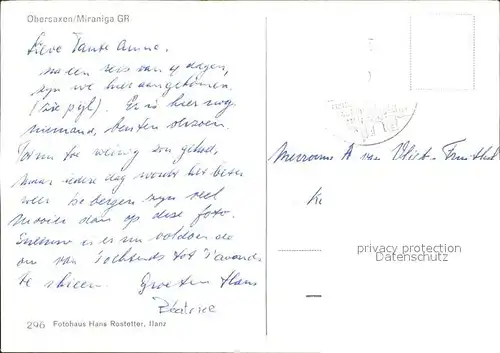 Obersaxen/Miraniga GR
Lieve Tante Anna,
na een reis van 4 dagen,
zijn we hier aangekomen.
(zie pijl). Er is hier nog
niemand, buiten seizoen.
Tot nu toe weinig zon gehad,
maar iedere dag wordt het beter
weer. De bergen zijn veel
mooier dan op deze foto.
Sneeuw is er nu voldoende
om van 's ochtends tot 's avonds
te skieen. Groeten Hans
Mevrouw A van Vliet-
privacy protection
Datenschutz
296 Fotohaus Hans Rostetter, Ilanz